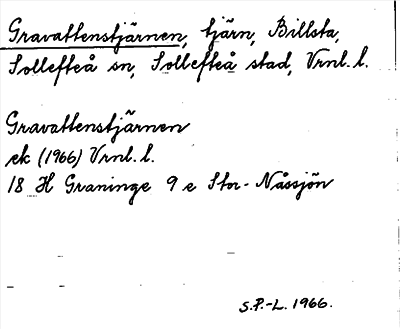 Gravattenstjärnen, tjärn, Billsta,
Sollefteå sn, Sollefteå stad, Vrnl. l.
Gravattenstjärnen
ek (1966) Vrnl. l.
18 H Graninge 9 e Stor-Nässjön
S.P.-L. 1966.